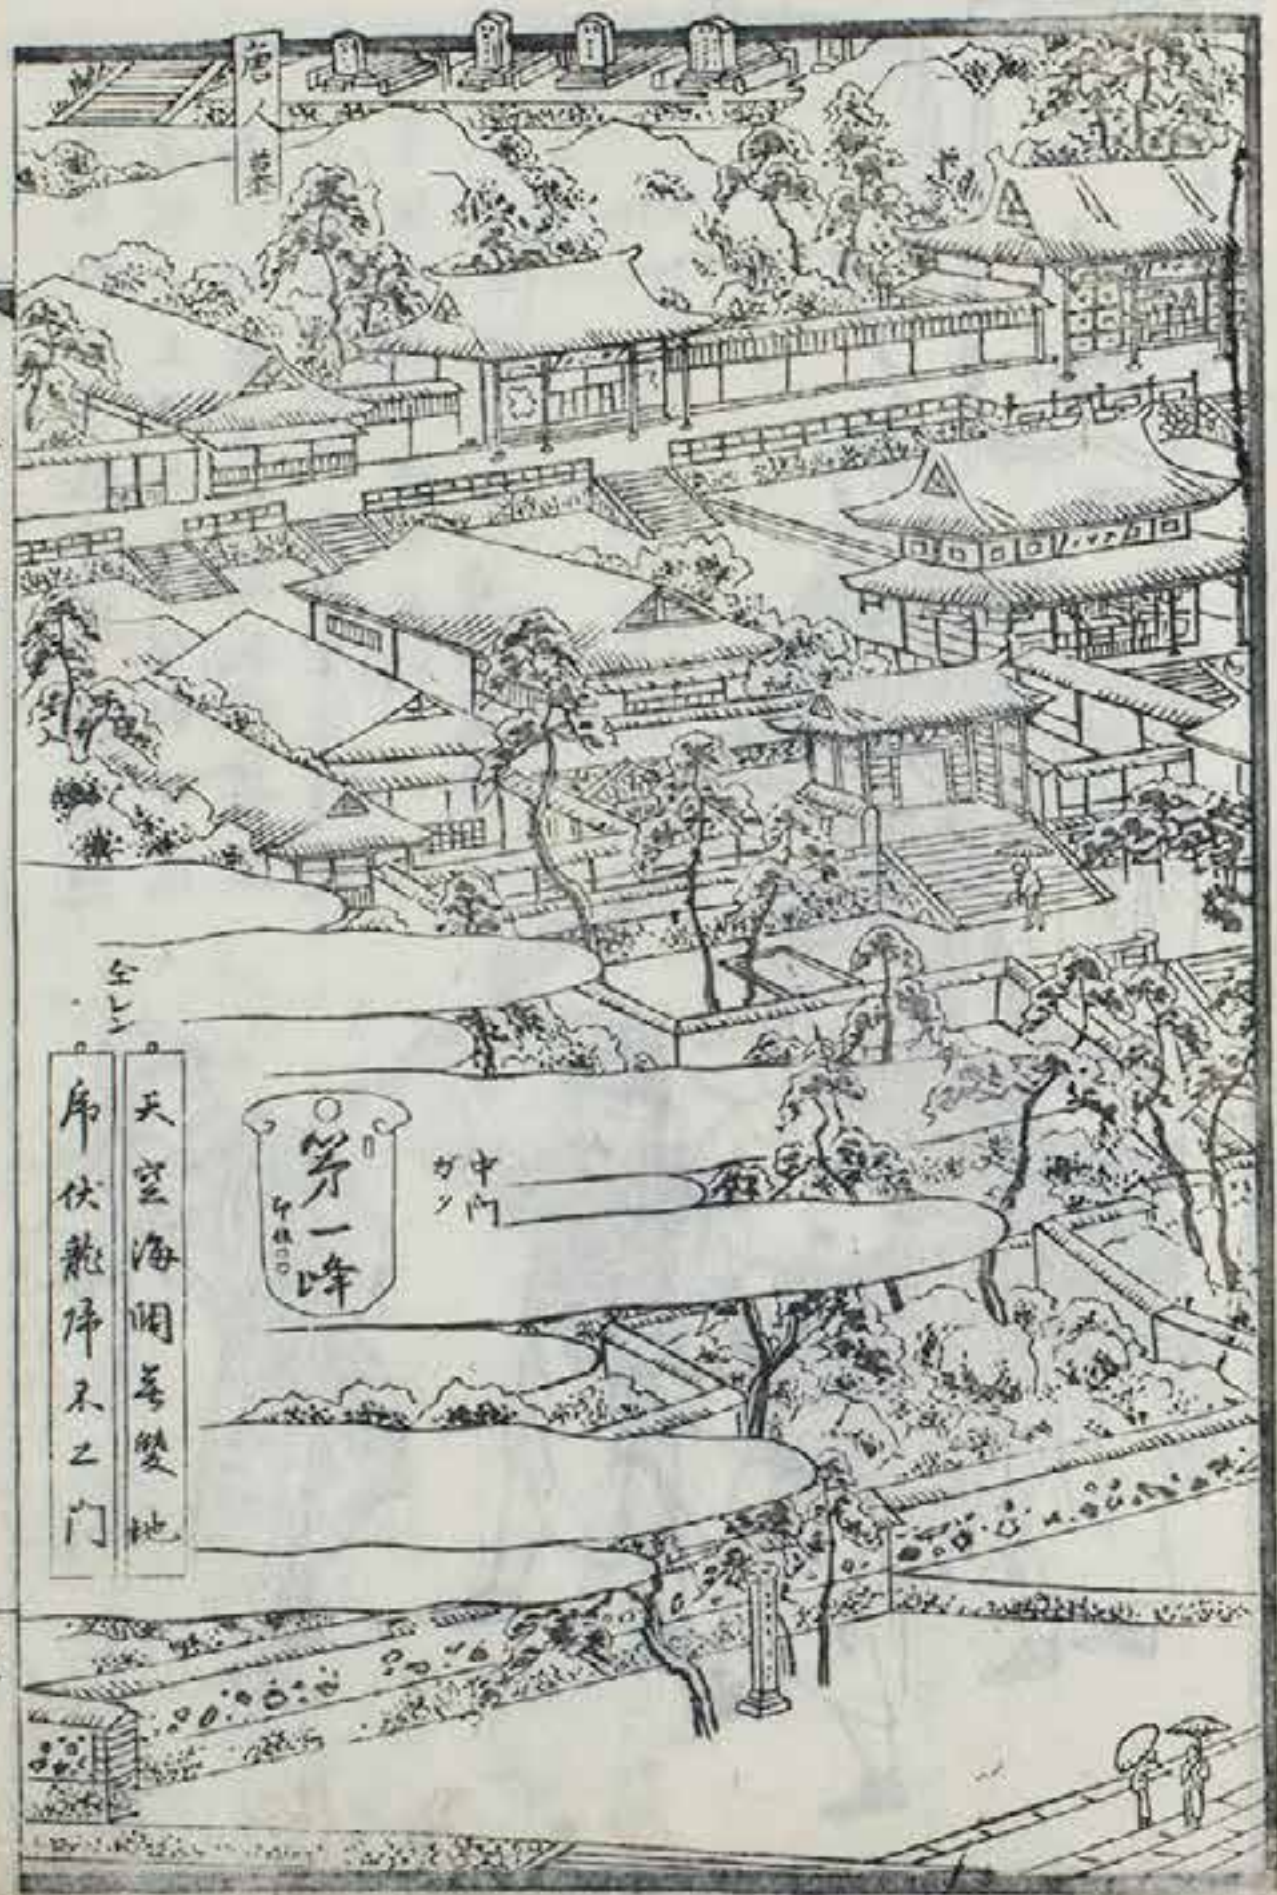 唐人墓
中門
ガク
第一峰
全レン
天空海闊無雙地
乕伏龍降不二门